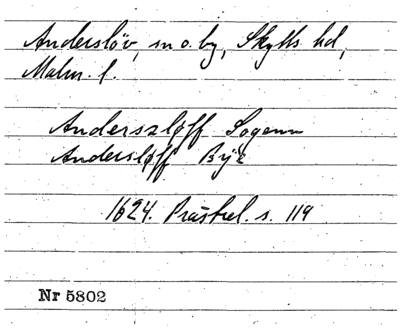 Anderslöv, sn o. by, Skytts hd,
Malm. l.
Anderszlöff Sogenn
Anderslöff Byie
1624. Prästrel. s. 119
Nr 5802